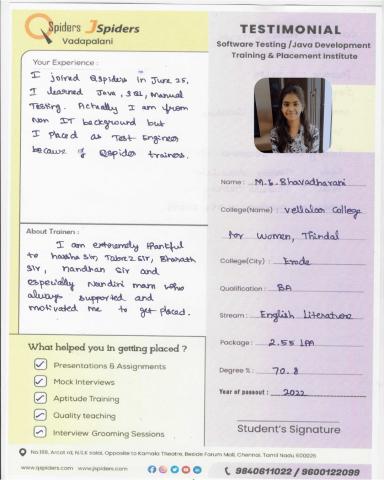 QSpiders JSpiders
Vadapalani
Your Experience :
I joined Qspiders in June 25,
I learned Java, SQL, Manual
Testing. Actually I am from
Non IT background but
I Placed as Test Engineer
because of Qspider trainers.
About Trainers :
I am extremely thankful
to harsha Sir, Tabrez Sir, Bharath
Sir, Nandhan Sir and
especially Nandini mam who
always supported and
motivated me to get placed.
What helped you in getting placed ?
Presentations & Assignments
Mock Interviews
Aptitude Training
Quality teaching
Interview Grooming Sessions
TESTIMONIAL
Software Testing /Java Development
Training & Placement Institute
Name : M.S. Bhavadharani
College(Name) : Vellalar College
for Women, Thindal
College(City) : Erode
Qualification : BA
Stream : English Literature
Package : 2.55 LPA
Degree % : 70.8
Year of passout : 2022
Student's Signature
No.188, Arcot rd, N.S.K salai, Opposite to Kamala Theatre, Beside Forum Mall, Chennai, Tamil Nadu 600026
www.qspiders.com www.jspiders.com
9840611022 / 9600122099